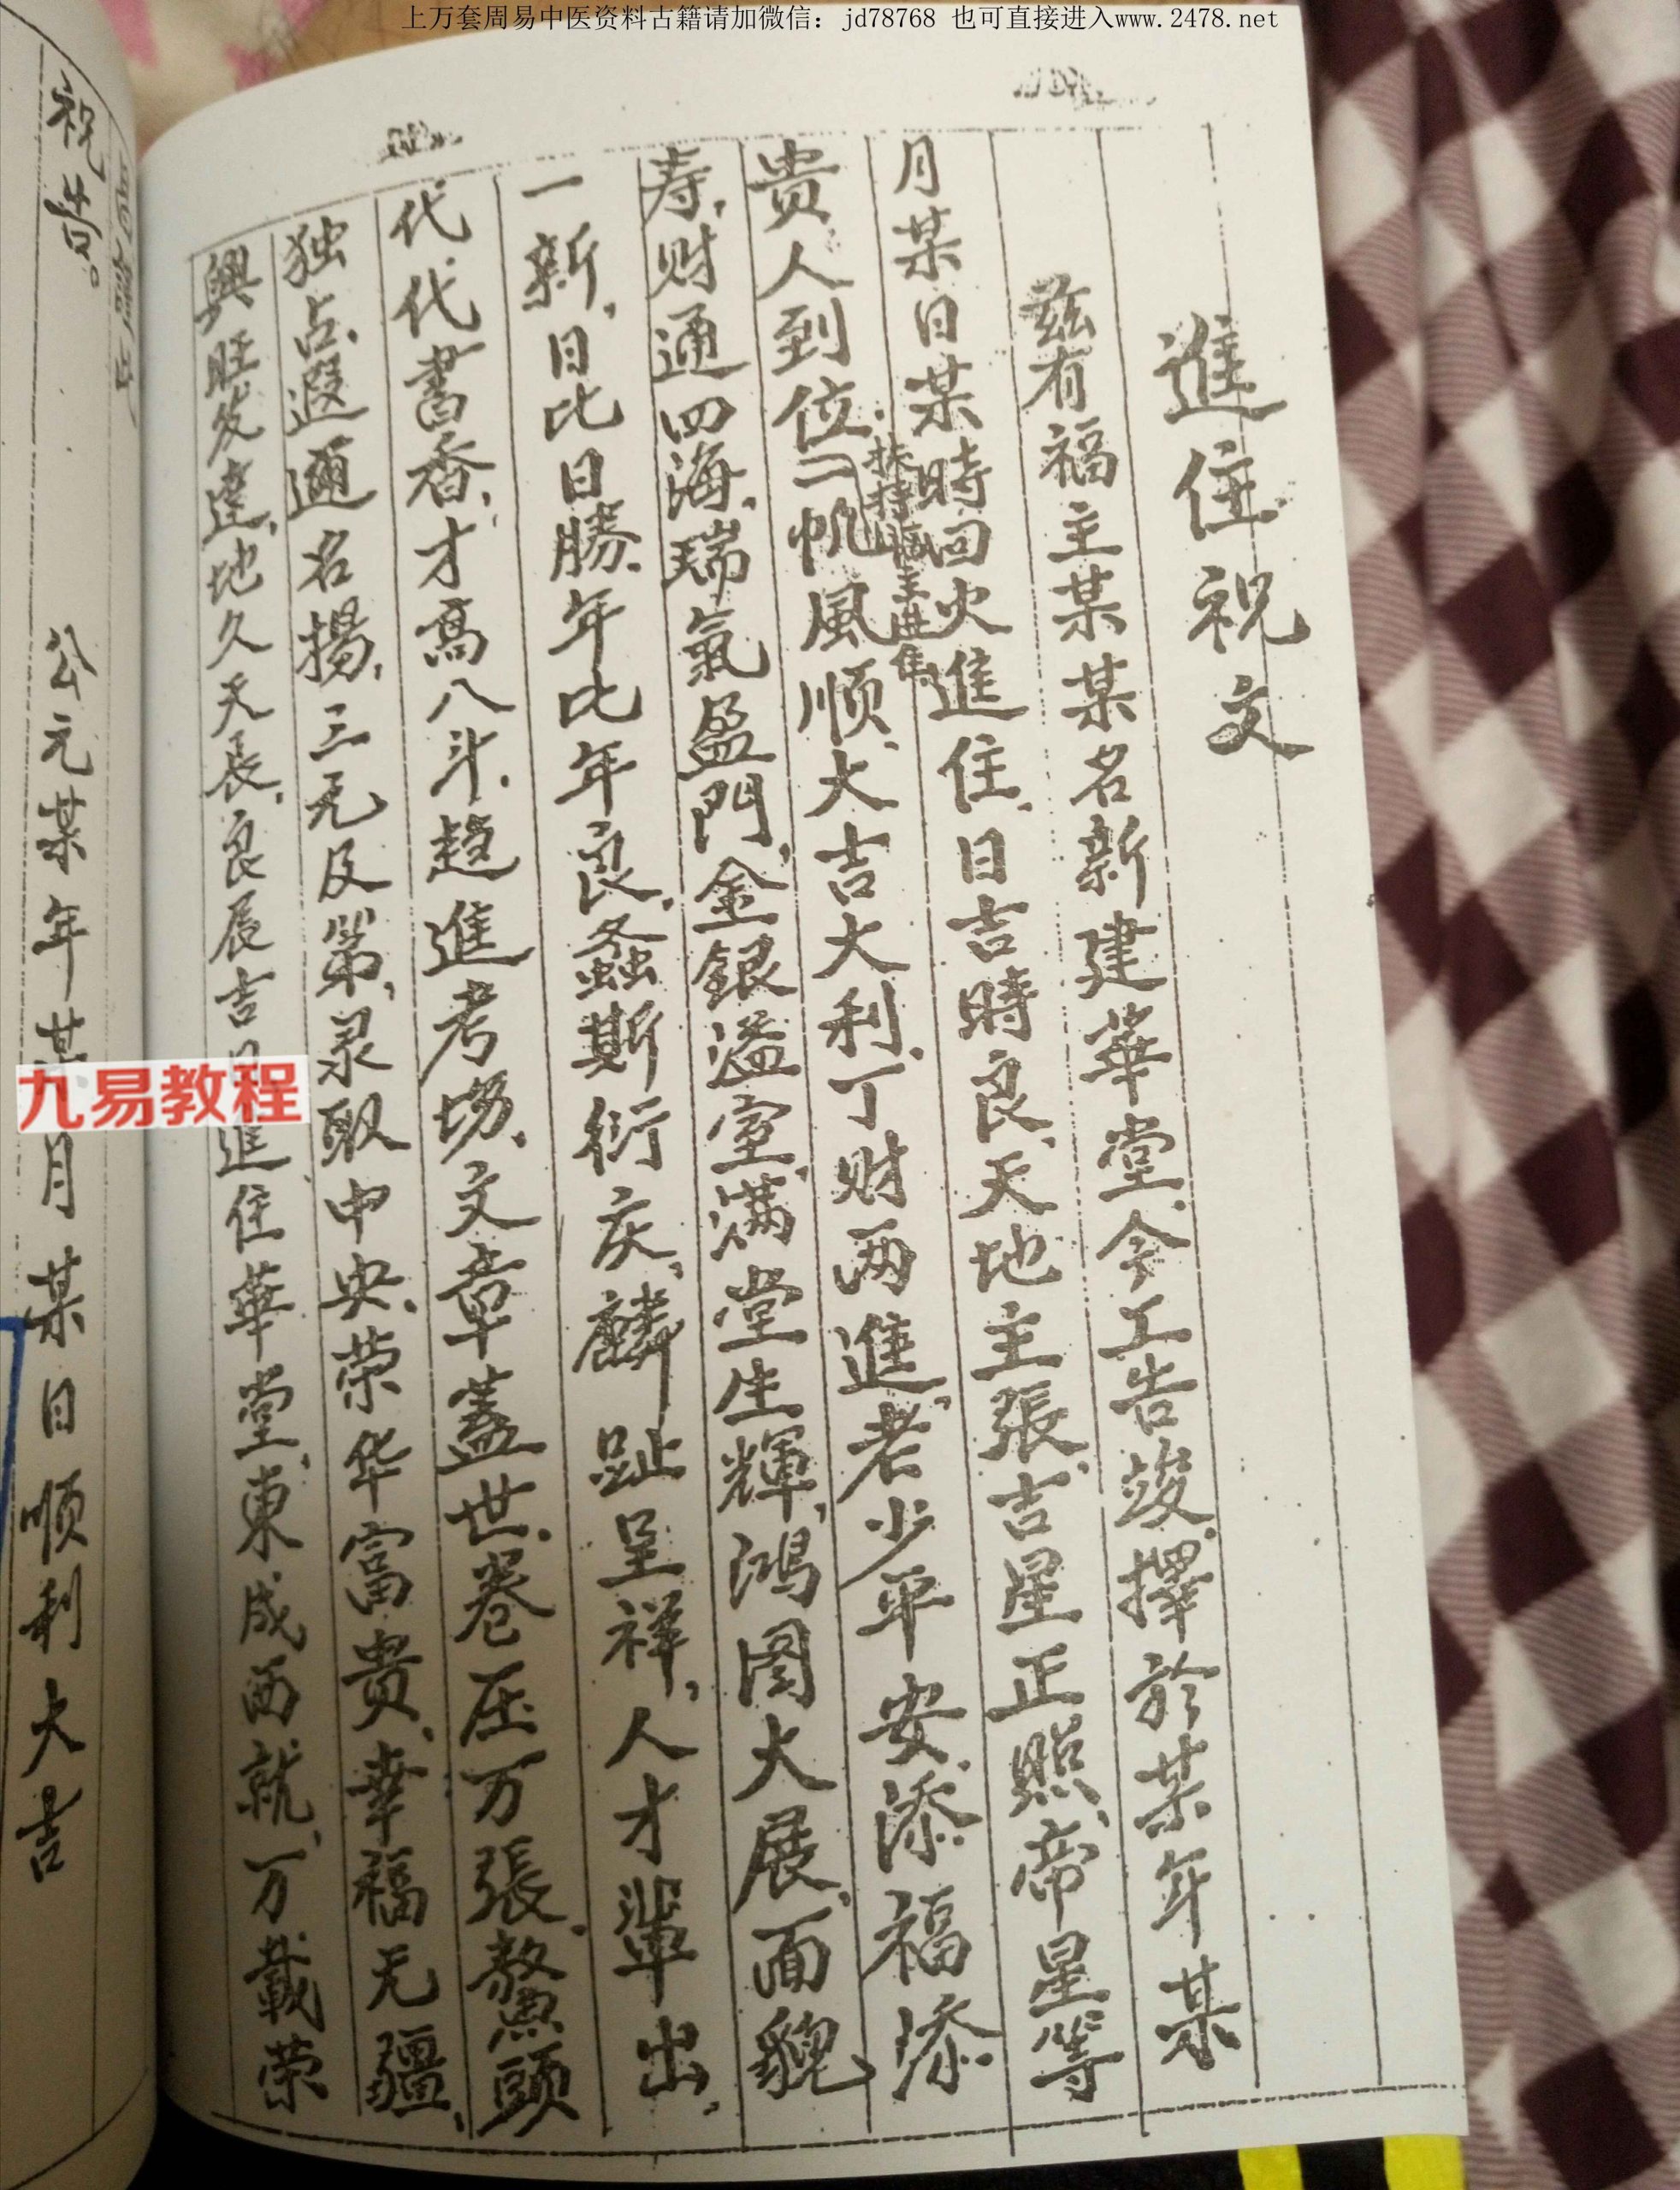 上万套周易中医资料古籍请加微信：jd78768 也可直接进入www.2478.net
進住祝文
兹有福主某某某名新建華堂、今工告竣、擇於某年某
月某日某時回火進住、日吉時良、天地主張、吉星正照、帝星等
扶持福主進住
贵人到位、一帆風顺、大吉大利、丁财两進、老少平安、添福添
寿、财通四海、瑞氣盈門、金銀溢室、满堂生輝、鸿图大展、面貌
一新、日比日勝、年比年良、螽斯衍庆、麟趾呈祥、人才輩出、
代代書香、才高八斗、趋進考场、文章蓋世、卷压万張、鰲頭
独占、遐邇名揚、三元及第、录取中央、荣华富贵、幸福无疆、
興旺发達、地久天長、良辰吉日進住華堂、東成西就、万載荣
祝告。
公元某年某月某日顺利大吉
九易教程